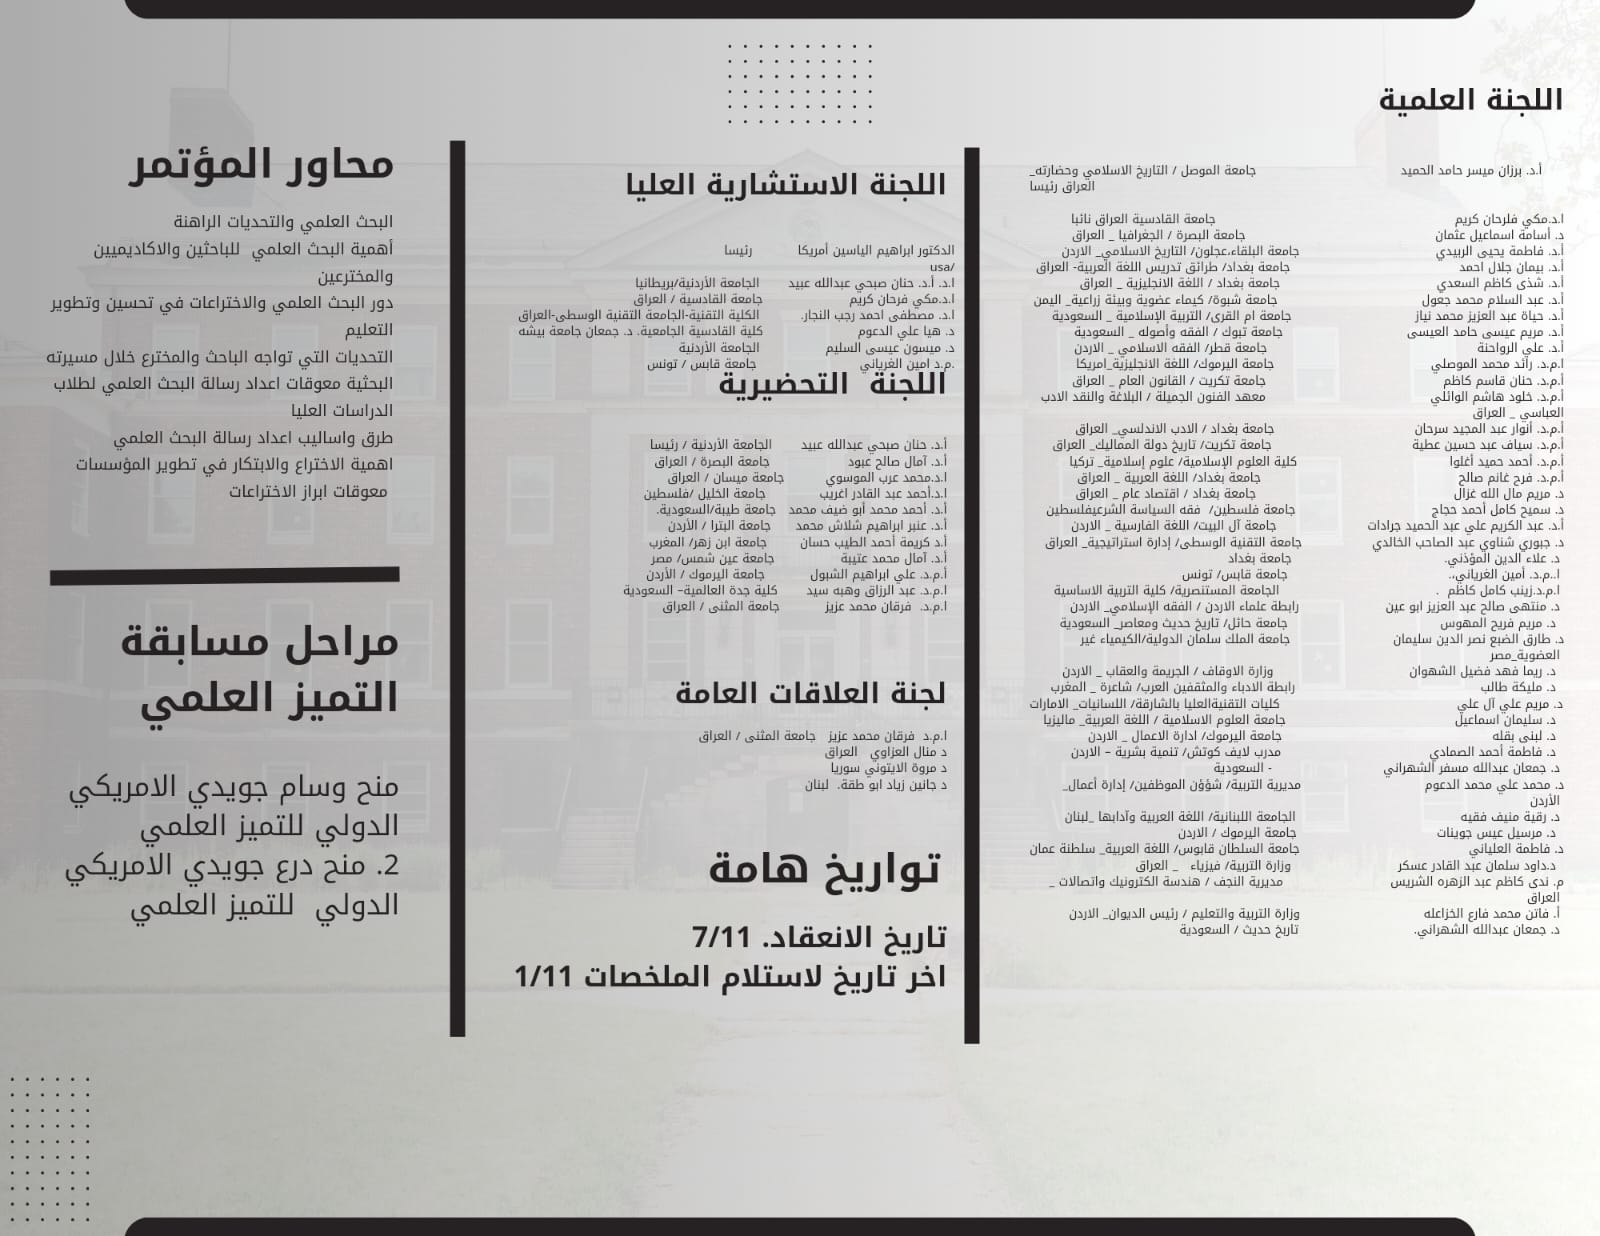 اللجنة العلمية
أ.د. برزان ميسر حامد الحميد جامعة الموصل / التاريخ الاسلامي وحضارته_
العراق رئيسا
ا.د.مكي فلرحان كريم جامعة القادسية العراق نائبا
د. أسامة اسماعيل عثمان جامعة البصرة / الجغرافيا _ العراق
أ.د. فاطمة يحيى الربيدي جامعة البلقاء،عجلون/ التاريخ الاسلامي_ الاردن
أ.د. بيمان جلال احمد جامعة بغداد/ طرائق تدريس اللغة العربية- العراق
أ.د. شذى كاظم السعدي جامعة بغداد / اللغة الانجليزية _ العراق
أ.د. عبد السلام محمد جعول جامعة شبوة/ كيماء عضوية وبيئة زراعية_ اليمن
أ.د. حياة عبد العزيز محمد نياز جامعة ام القرى/ التربية الإسلامية _ السعودية
أ.د. مريم عيسى حامد العيسى جامعة تبوك / الفقه وأصوله _ السعودية
أ.د. علي الرواحنة جامعة قطر/ الفقه الاسلامي _ الاردن
ا.م.د. رائد محمد الموصلي جامعة اليرموك/ اللغة الانجليزية_امريكا
أ.م.د. حنان قاسم كاظم جامعة تكريت / القانون العام _ العراق
أ.م.د. خلود هاشم الوائلي معهد الفنون الجميلة / البلاغة والنقد الادب
العباسي _ العراق
أ.م.د. أنوار عبد المجيد سرحان جامعة بغداد / الادب الاندلسي_ العراق
أ.م.د. سياف عبد حسين عطية جامعة تكريت/ تاريخ دولة المماليك_ العراق
أ.م.د. أحمد حميد أغلوا كلية العلوم الإسلامية/ علوم إسلامية_ تركيا
أ.م.د. فرح غانم صالح جامعة بغداد/ اللغة العربية _ العراق
د. مريم مال الله غزال جامعة بغداد / اقتصاد عام _ العراق
د. سميح كامل أحمد حجاج جامعة فلسطين/ فقه السياسة الشرعيفلسطين
أ.د. عبد الكريم علي عبد الحميد جرادات جامعة آل البيت/ اللغة الفارسية _ الاردن
د. جبوري شناوي عبد الصاحب الخالدي جامعة التقنية الوسطى/ إدارة استراتيجية_ العراق
د. علاء الدين المؤذني. جامعة بغداد
ا..م.د. أمين الغرياني.. جامعة قابس/ تونس
ا.م.د.زينب كامل كاظم . الجامعة المستنصرية/ كلية التربية الاساسية
د. منتهى صالح عبد العزيز ابو عين رابطة علماء الاردن / الفقه الإسلامي_ الاردن
د. مريم فريح المهوس جامعة حائل/ تاريخ حديث ومعاصر_ السعودية
د. طارق الضبع نصر الدين سليمان جامعة الملك سلمان الدولية/الكيمياء غير
العضوية_مصر
د. ريما فهد فضيل الشهوان وزارة الاوقاف / الجريمة والعقاب _ الاردن
د. مليكة طالب رابطة الادباء والمثقفين العرب/ شاعرة _ المغرب
د. مريم علي آل علي كليات التقنيةالعليا بالشارقة/ اللسانيات_ الامارات
د. سليمان اسماعيل جامعة العلوم الاسلامية / اللغة العربية_ ماليزيا
د. لبنى بقله جامعة اليرموك/ ادارة الاعمال _ الاردن
د. فاطمة أحمد الصمادي مدرب لايف كوتش/ تنمية بشرية – الاردن
د. جمعان عبدالله مسفر الشهراني - السعودية
د. محمد علي محمد الدعوم مديرية التربية/ شؤؤن الموظفين/ إدارة أعمال_
الأردن
د. رقية منيف فقيه الجامعة اللبنانية/ اللغة العربية وآدابها _لبنان
د. مرسيل عيس جوينات جامعة اليرموك / الاردن
د. فاطمة العلياني جامعة السلطان قابوس/ اللغة العربية_ سلطنة عمان
د.داود سلمان عبد القادر عسكر وزارة التربية/ فيزياء _ العراق
م. ندى كاظم عبد الزهره الشريس مديرية النجف / هندسة الكترونيك واتصالات _
العراق
أ. فاتن محمد فارع الخزاعله وزارة التربية والتعليم / رئيس الديوان_ الاردن
د. جمعان عبدالله الشهراني. تاريخ حديث / السعودية
اللجنة الاستشارية العليا
الدكتور ابراهيم الياسين أمريكا رئيسا
usa/
ا.د. أ.د. حنان صبحي عبدالله عبيد الجامعة الأردنية/بريطانيا
ا.د.مكي فرحان كريم جامعة القادسية / العراق
ا.د. مصطفى احمد رجب النجار. الكلية التقنية-الجامعة التقنية الوسطى-العراق
د. هيا علي الدعوم كلية القادسية الجامعية. د. جمعان جامعة بيشه
د. ميسون عيسى السليم الجامعة الأردنية
.م.د امين الغرياني جامعة قابس / تونس
اللجنة التحضيرية
أ.د. حنان صبحي عبدالله عبيد الجامعة الأردنية / رئيسا
أ.د. آمال صالح عبود جامعة البصرة / العراق
ا.د.محمد عرب الموسوي جامعة ميسان / العراق
ا.د.أحمد عبد القادر اغريب جامعة الخليل /فلسطين
أ.د. أحمد محمد أبو ضيف محمد جامعة طيبة/السعودية.
أ.د. عنبر ابراهيم شلاش محمد جامعة البترا / الأردن
أ.د كريمة أحمد الطيب حسان جامعة ابن زهر/ المغرب
أ.د. آمال محمد عتيبة جامعة عين شمس/ مصر
أ.م.د. علي ابراهيم الشبول جامعة اليرموك / الأردن
ا.م.د. عبد الرزاق وهبه سيد كلية جدة العالمية– السعودية
ا.م.د. فرقان محمد عزيز جامعة المثنى / العراق
لجنة العلاقات العامة
ا.م.د فرقان محمد عزيز جامعة المثنى / العراق
د منال العزاوي العراق
د مروة الايتوني سوريا
د جانين زياد ابو طقة. لبنان
تواريخ هامة
تاريخ الانعقاد. 7/11
اخر تاريخ لاستلام الملخصات 1/11
محاور المؤتمر
البحث العلمي والتحديات الراهنة
أهمية البحث العلمي للباحثين والاكاديميين
والمخترعين
دور البحث العلمي والاختراعات في تحسين وتطوير
التعليم
التحديات التي تواجه الباحث والمخترع خلال مسيرته
البحثية معوقات اعداد رسالة البحث العلمي لطلاب
الدراسات العليا
طرق واساليب اعداد رسالة البحث العلمي
اهمية الاختراع والابتكار في تطوير المؤسسات
معوقات ابراز الاختراعات
مراحل مسابقة
التميز العلمي
منح وسام جويدي الامريكي
الدولي للتميز العلمي
2. منح درع جويدي الامريكي
الدولي للتميز العلمي